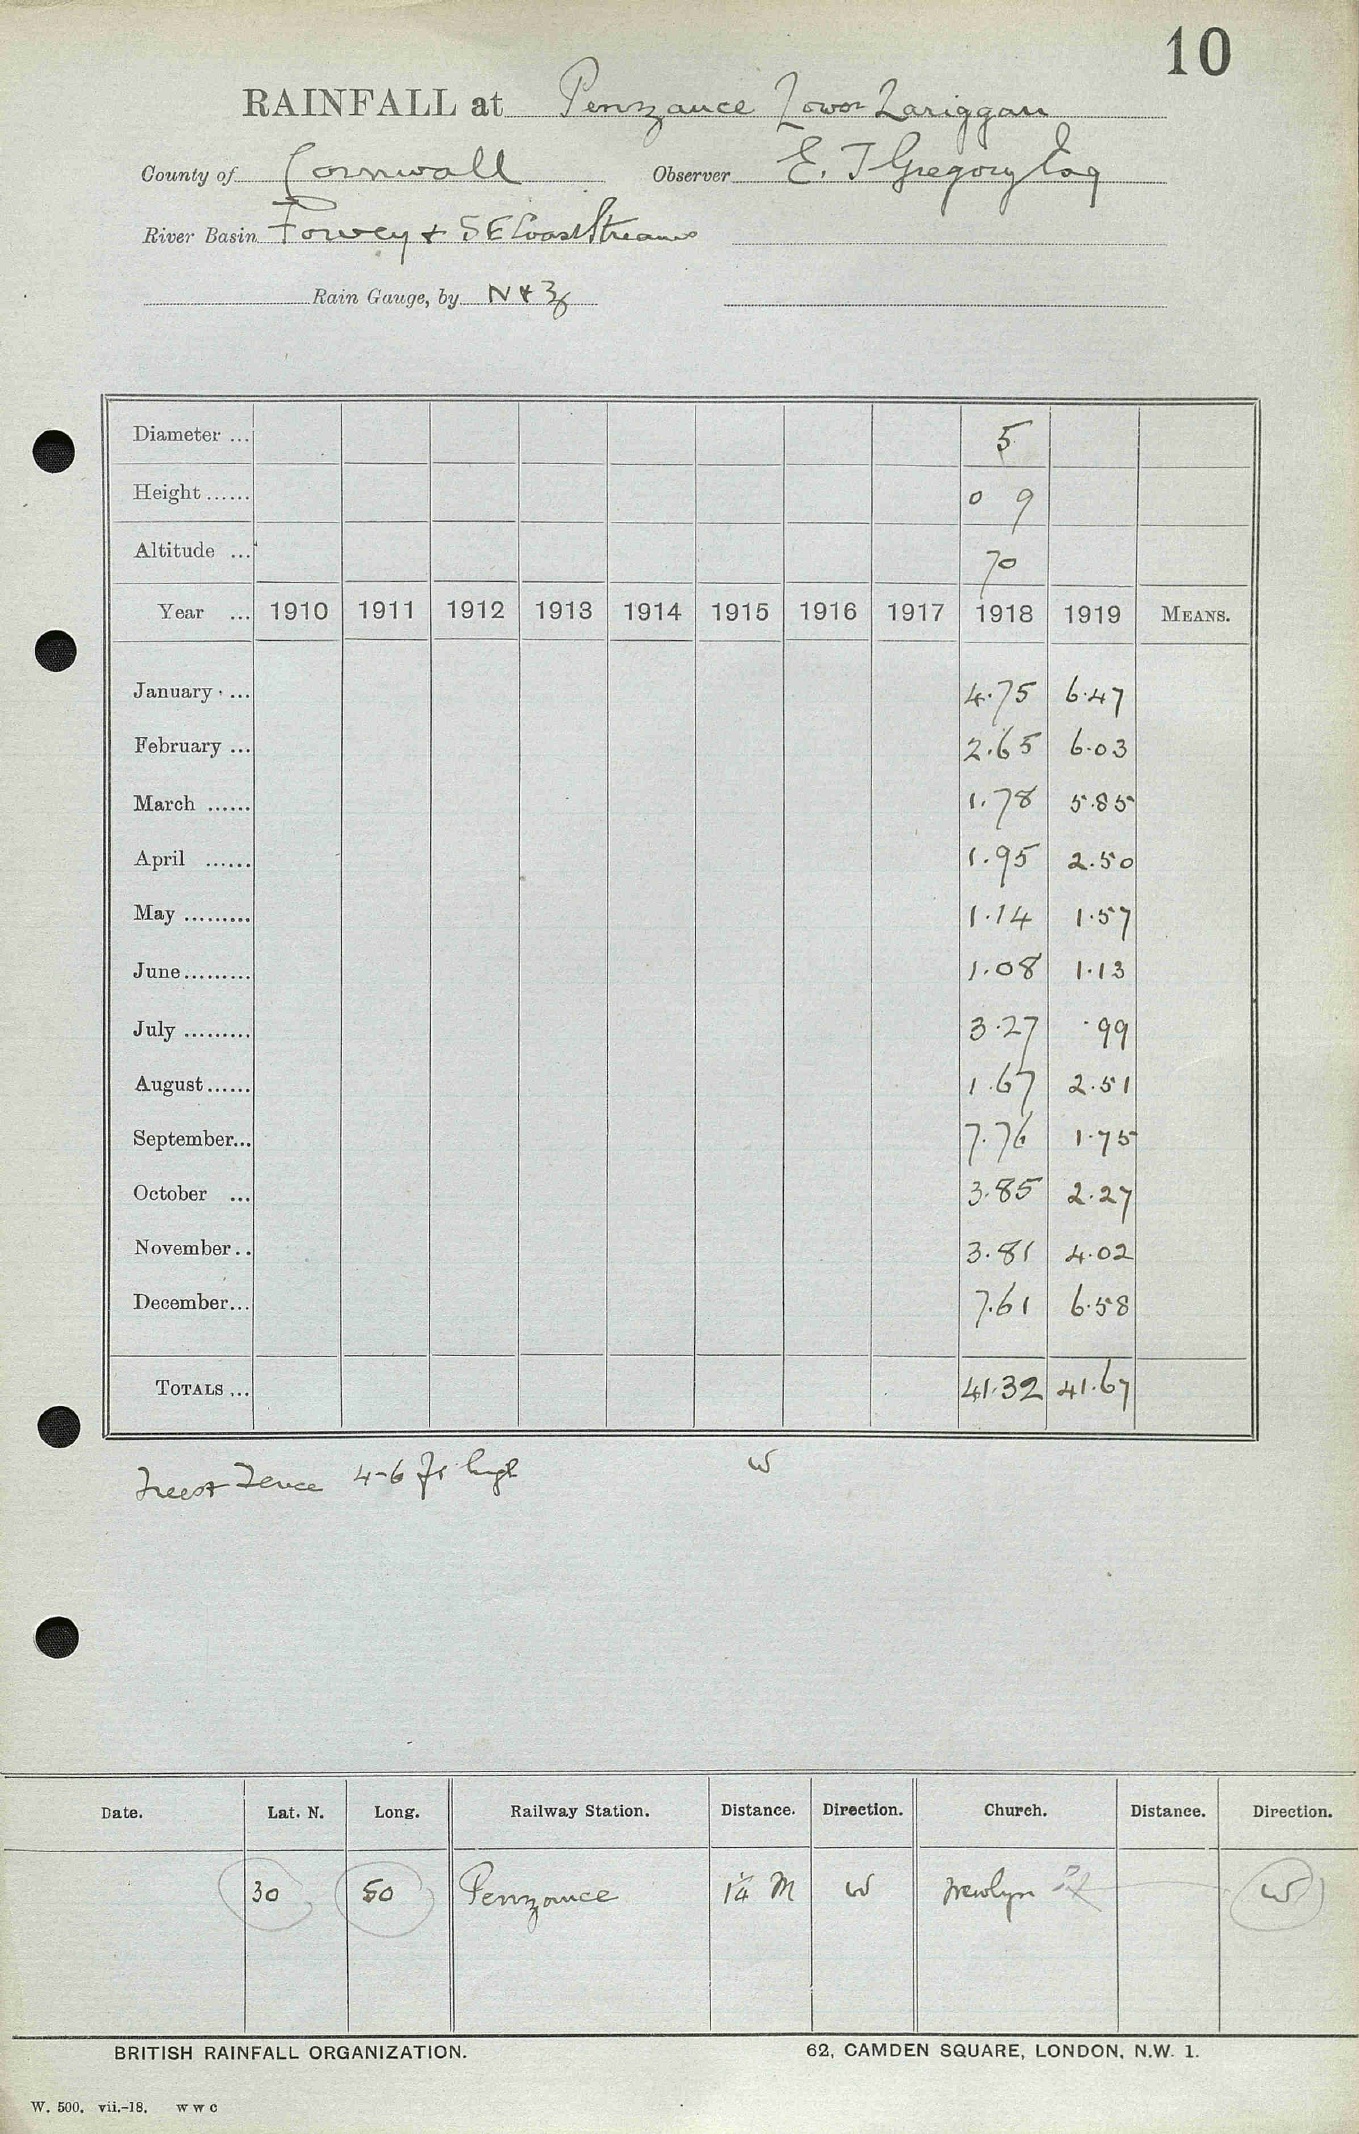 10
RAINFALL at Penzance Lower Lariggan
County of Cornwall Observer E. J Gregory Esq
River Basin Fowey & S E Coast Streams
Rain Gauge, by N & Z
Diameter ... 5
Height ...... 0 9
Altitude ... 70
Year ... 1910 1911 1912 1913 1914 1915 1916 1917 1918 1919 MEANS.
January ... 4.75 6.47
February ... 2.65 6.03
March ...... 1.78 5.85
April ...... 1.95 2.50
May ......... 1.14 1.57
June......... 1.08 1.13
July ......... 3.27 .99
August...... 1.67 2.51
September... 7.76 1.75
October ... 3.85 2.27
November.. 3.81 4.02
December... 7.61 6.58
TOTALS ... 41.32 41.67
Fence 4-6 ft high W
Date. Lat. N. Long. Railway Station. Distance. Direction. Church. Distance. Direction.
30 50 Penzance 1¼ M W Newlyn W
BRITISH RAINFALL ORGANIZATION. 62, CAMDEN SQUARE, LONDON, N.W. 1.
W. 500. vii.-18. W W C